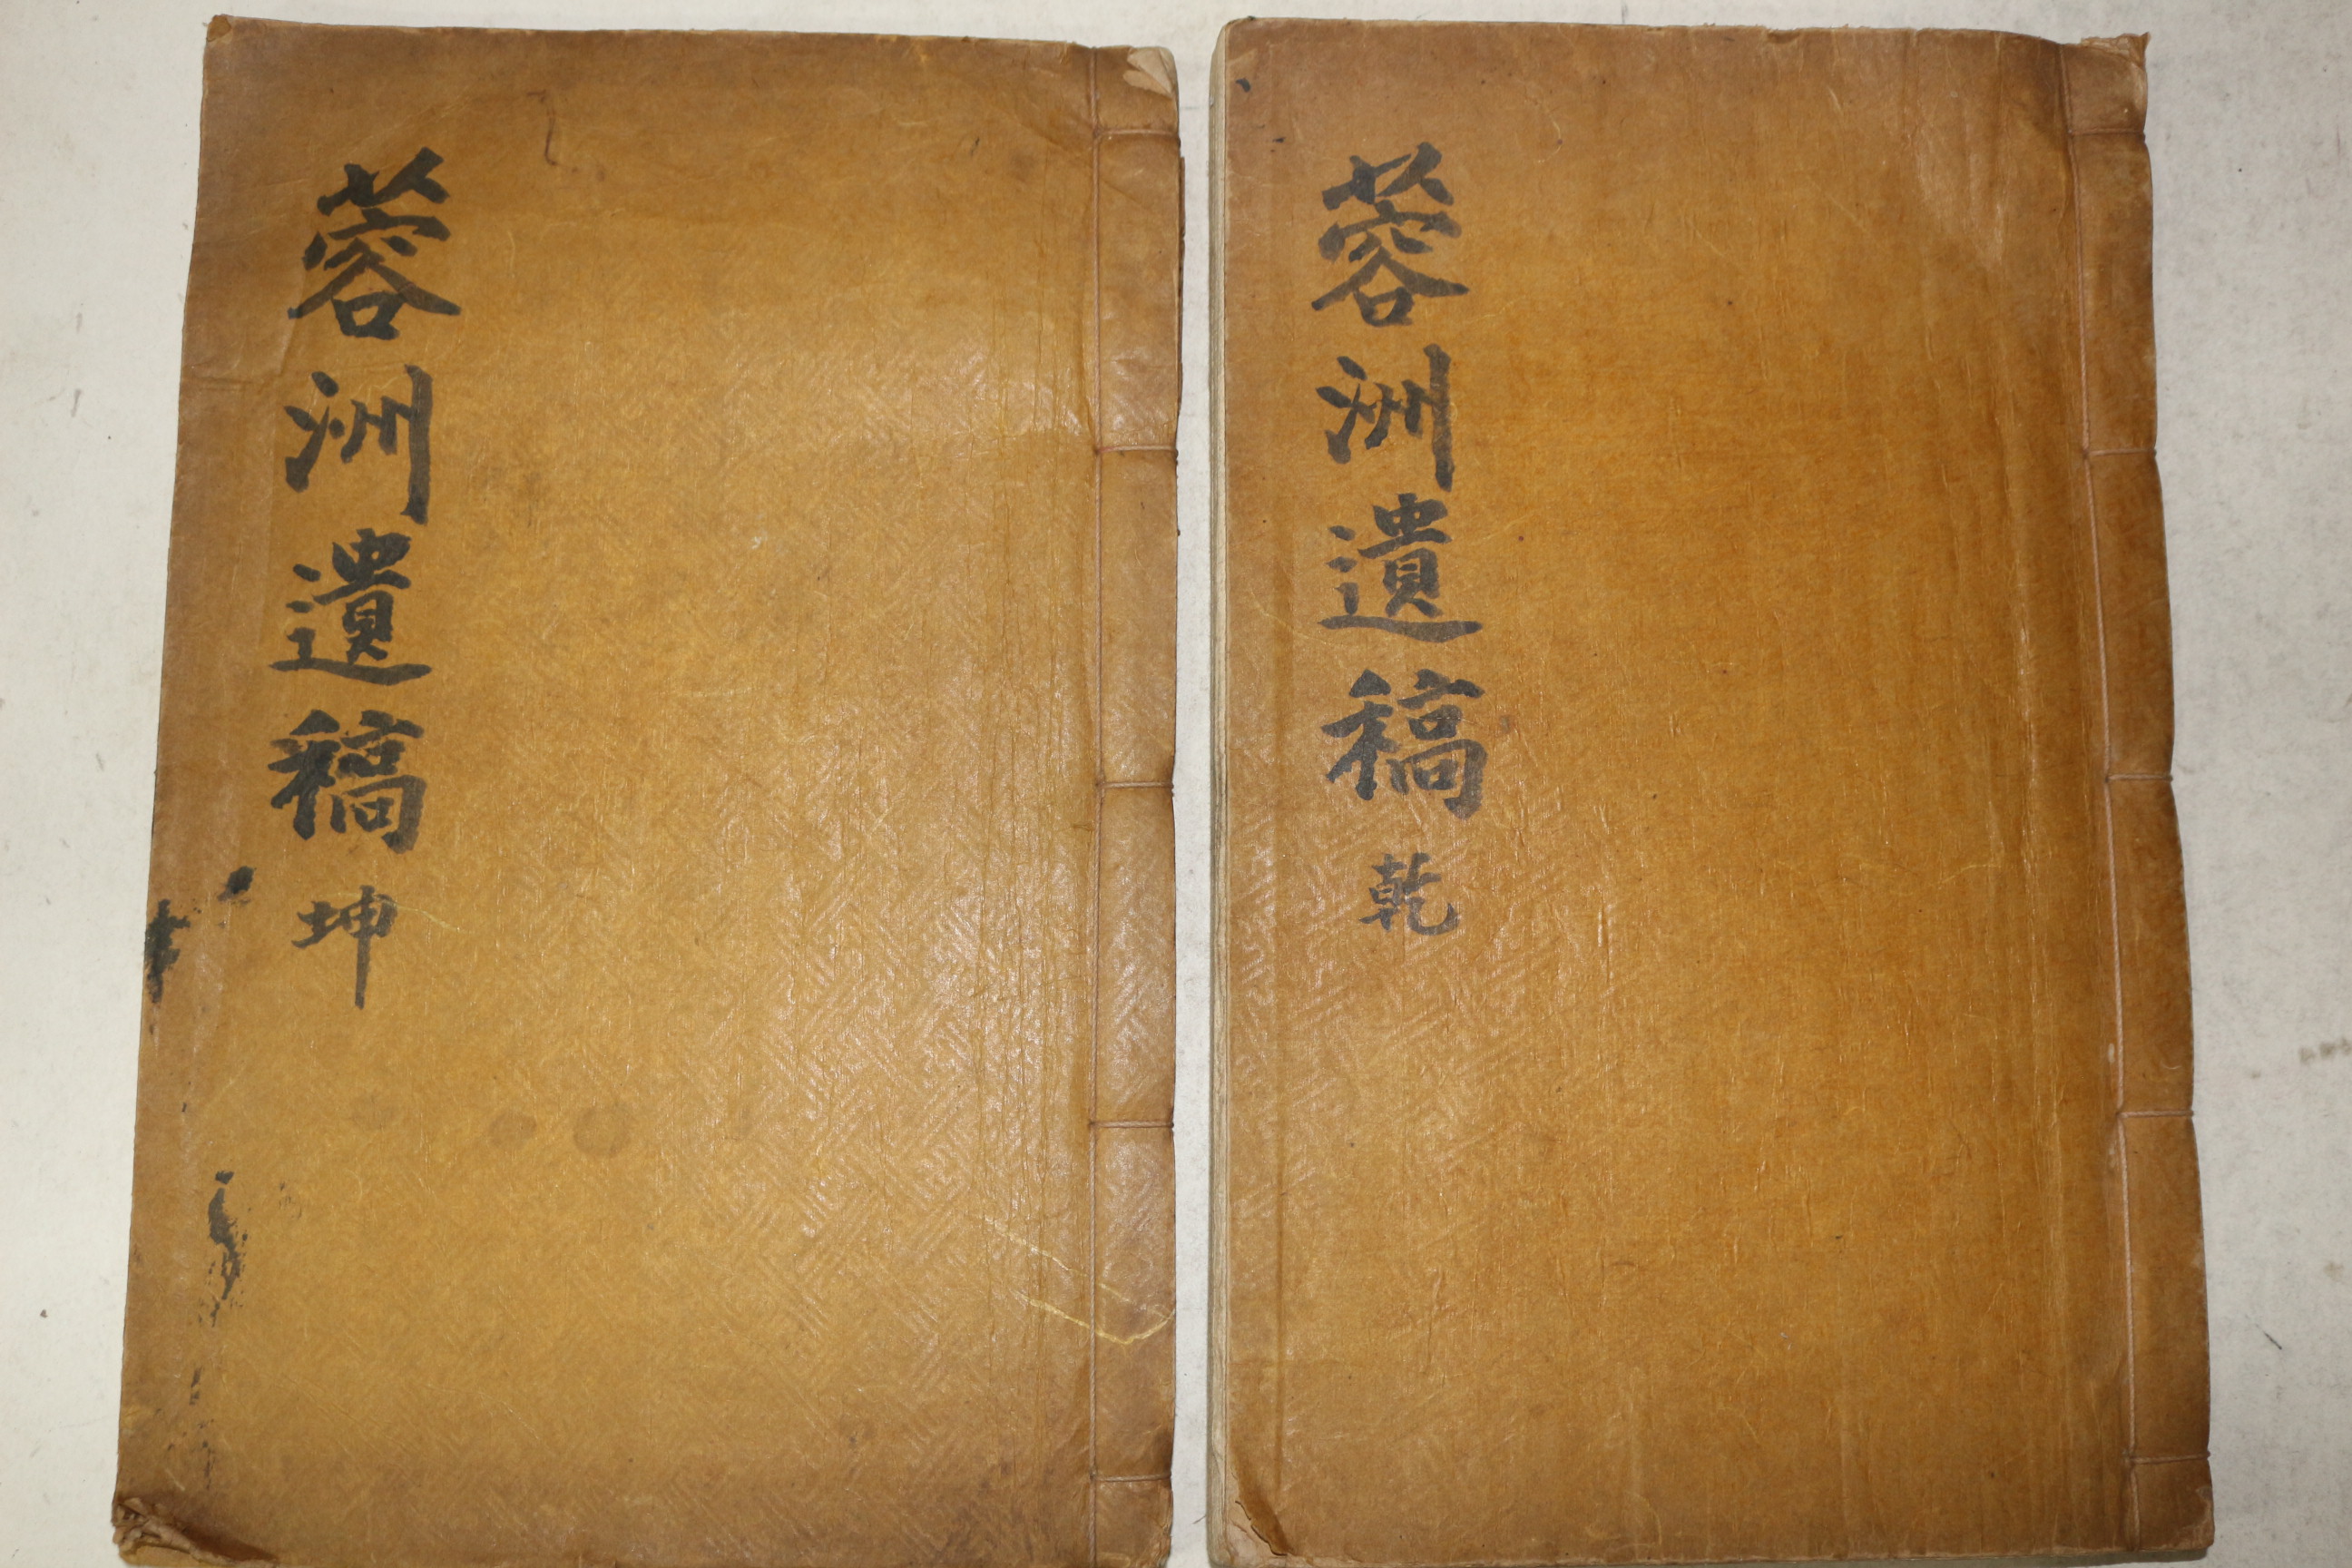 蓉洲遺稿 乾
蓉洲遺稿 坤